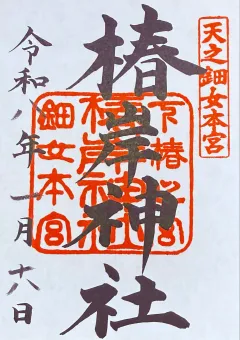 天之鈿女本宮
椿岸神社
令和八年一月十六日
鈿女本宮